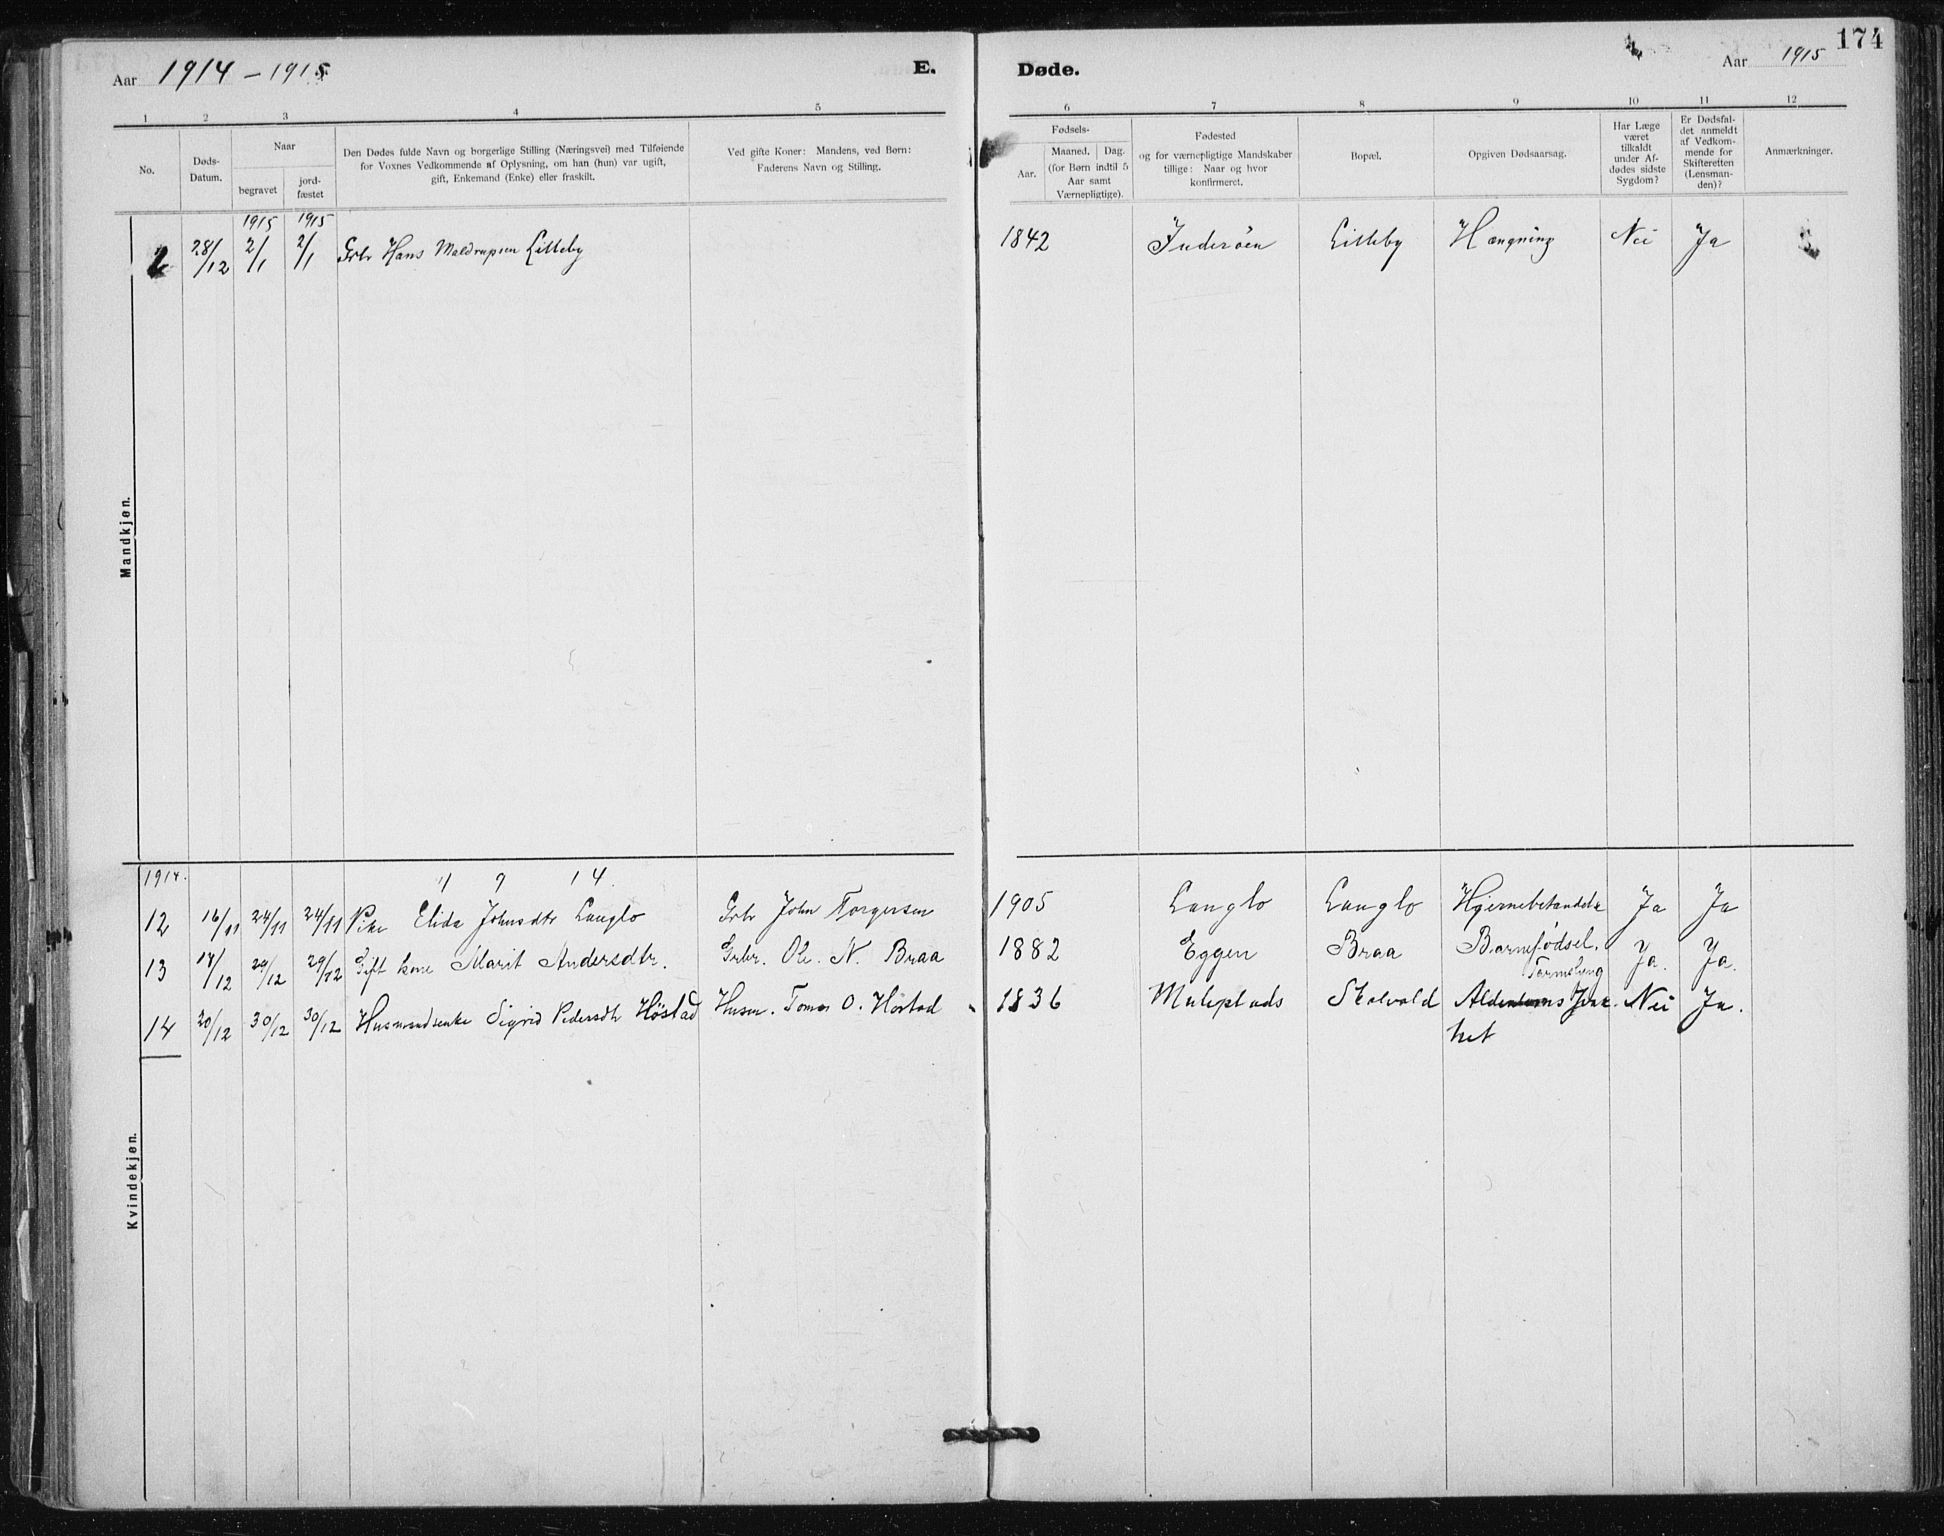 174
Aar 1914 - 1915 E. Døde. Aar 1915
1 2 3 4 5 6 7 8 9 10 11 12
No.
Døds-
Datum.
Naar
begravet
jord-
fæstet
Den Dødes fulde Navn og borgerlige Stilling (Næringsvei) med Tilføiende
for Voxnes Vedkommende af Oplysning, om han (hun) var ugift,
gift, Enkemand (Enke) eller fraskilt.
Ved gifte Koner: Mandens, ved Børn:
Faderens Navn og Stilling.
Fødsels-
Aar.
Maaned. Dag.
(for Børn indtil 5
Aar samt
Værnepligtige).
Fødested
og for værnepligtige Mandskaber
tillige: Naar og hvor
konfirmeret.
Bopæl.
Opgiven Dødsaarsag.
Har Læge
været
tilkaldt
under Af-
dødes sidste
Sygdom?
Er Dødsfal-
det anmeldt
af Vedkom-
mende for
Skifteretten
(Lensman-
den)?
Anmærkninger.
Mandkjøn.
1915 1915
28/12 2/1 2/1 Grbr Hans Litleby 1842 Inderøen Litleby Hængning Nei Ja
Kvindekjøn.
1914.
1 9 14.
12 16/11 24/11 24/11 Pike Elida Johnsdtr Langlo Grbr John Torgersen 1905 Langlo Langlo Hjernebetændelse Ja Ja
13 17/12 29/12 29/12 Gift kone Marit Andersdtr. Grbr. Ole. N. Braa 1882 Eggen Braa Barnefødsel. Ja. Ja.
Tarmslyng
14 20/12 30/12 30/12 Husmandsenke Sigrid Pedersdtr Høstad Husm. Tomas O. Høstad 1836 Muleplads Skolvold Nei Ja.
het